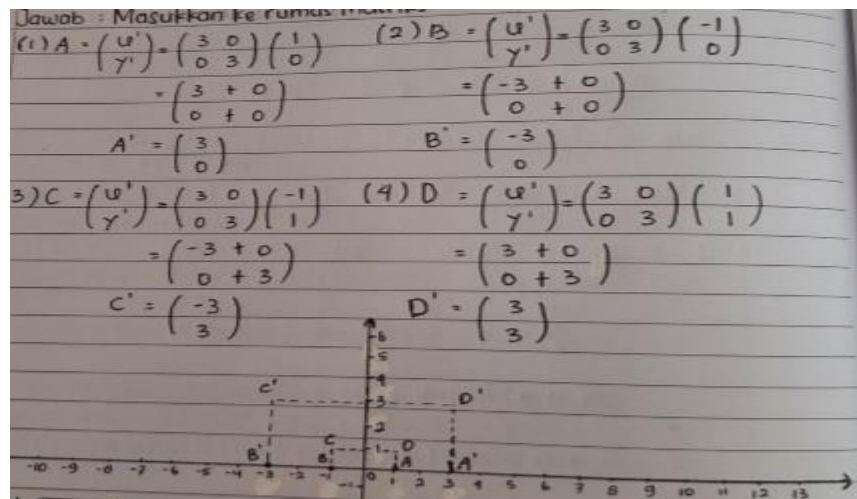 Jawab : Masukkan ke rumus matriks
(1) A = (x' y') = (3 0 0 3) (1 0)
= (3 + 0 0 + 0)
A' = (3 0)
(2) B = (x' y') = (3 0 0 3) (-1 0)
= (-3 + 0 0 + 0)
B' = (-3 0)
3) C = (x' y') = (3 0 0 3) (-1 1)
= (-3 + 0 0 + 3)
C' = (-3 3)
(4) D = (x' y') = (3 0 0 3) (1 1)
= (3 + 0 0 + 3)
D' = (3 3)
6
5
4
C' 3 D'
2
C 1 D
B' B A A'
-10 -9 -8 -7 -6 -5 -4 -3 -2 -1 0 1 2 3 4 5 6 7 8 9 10 11 12 13
-1